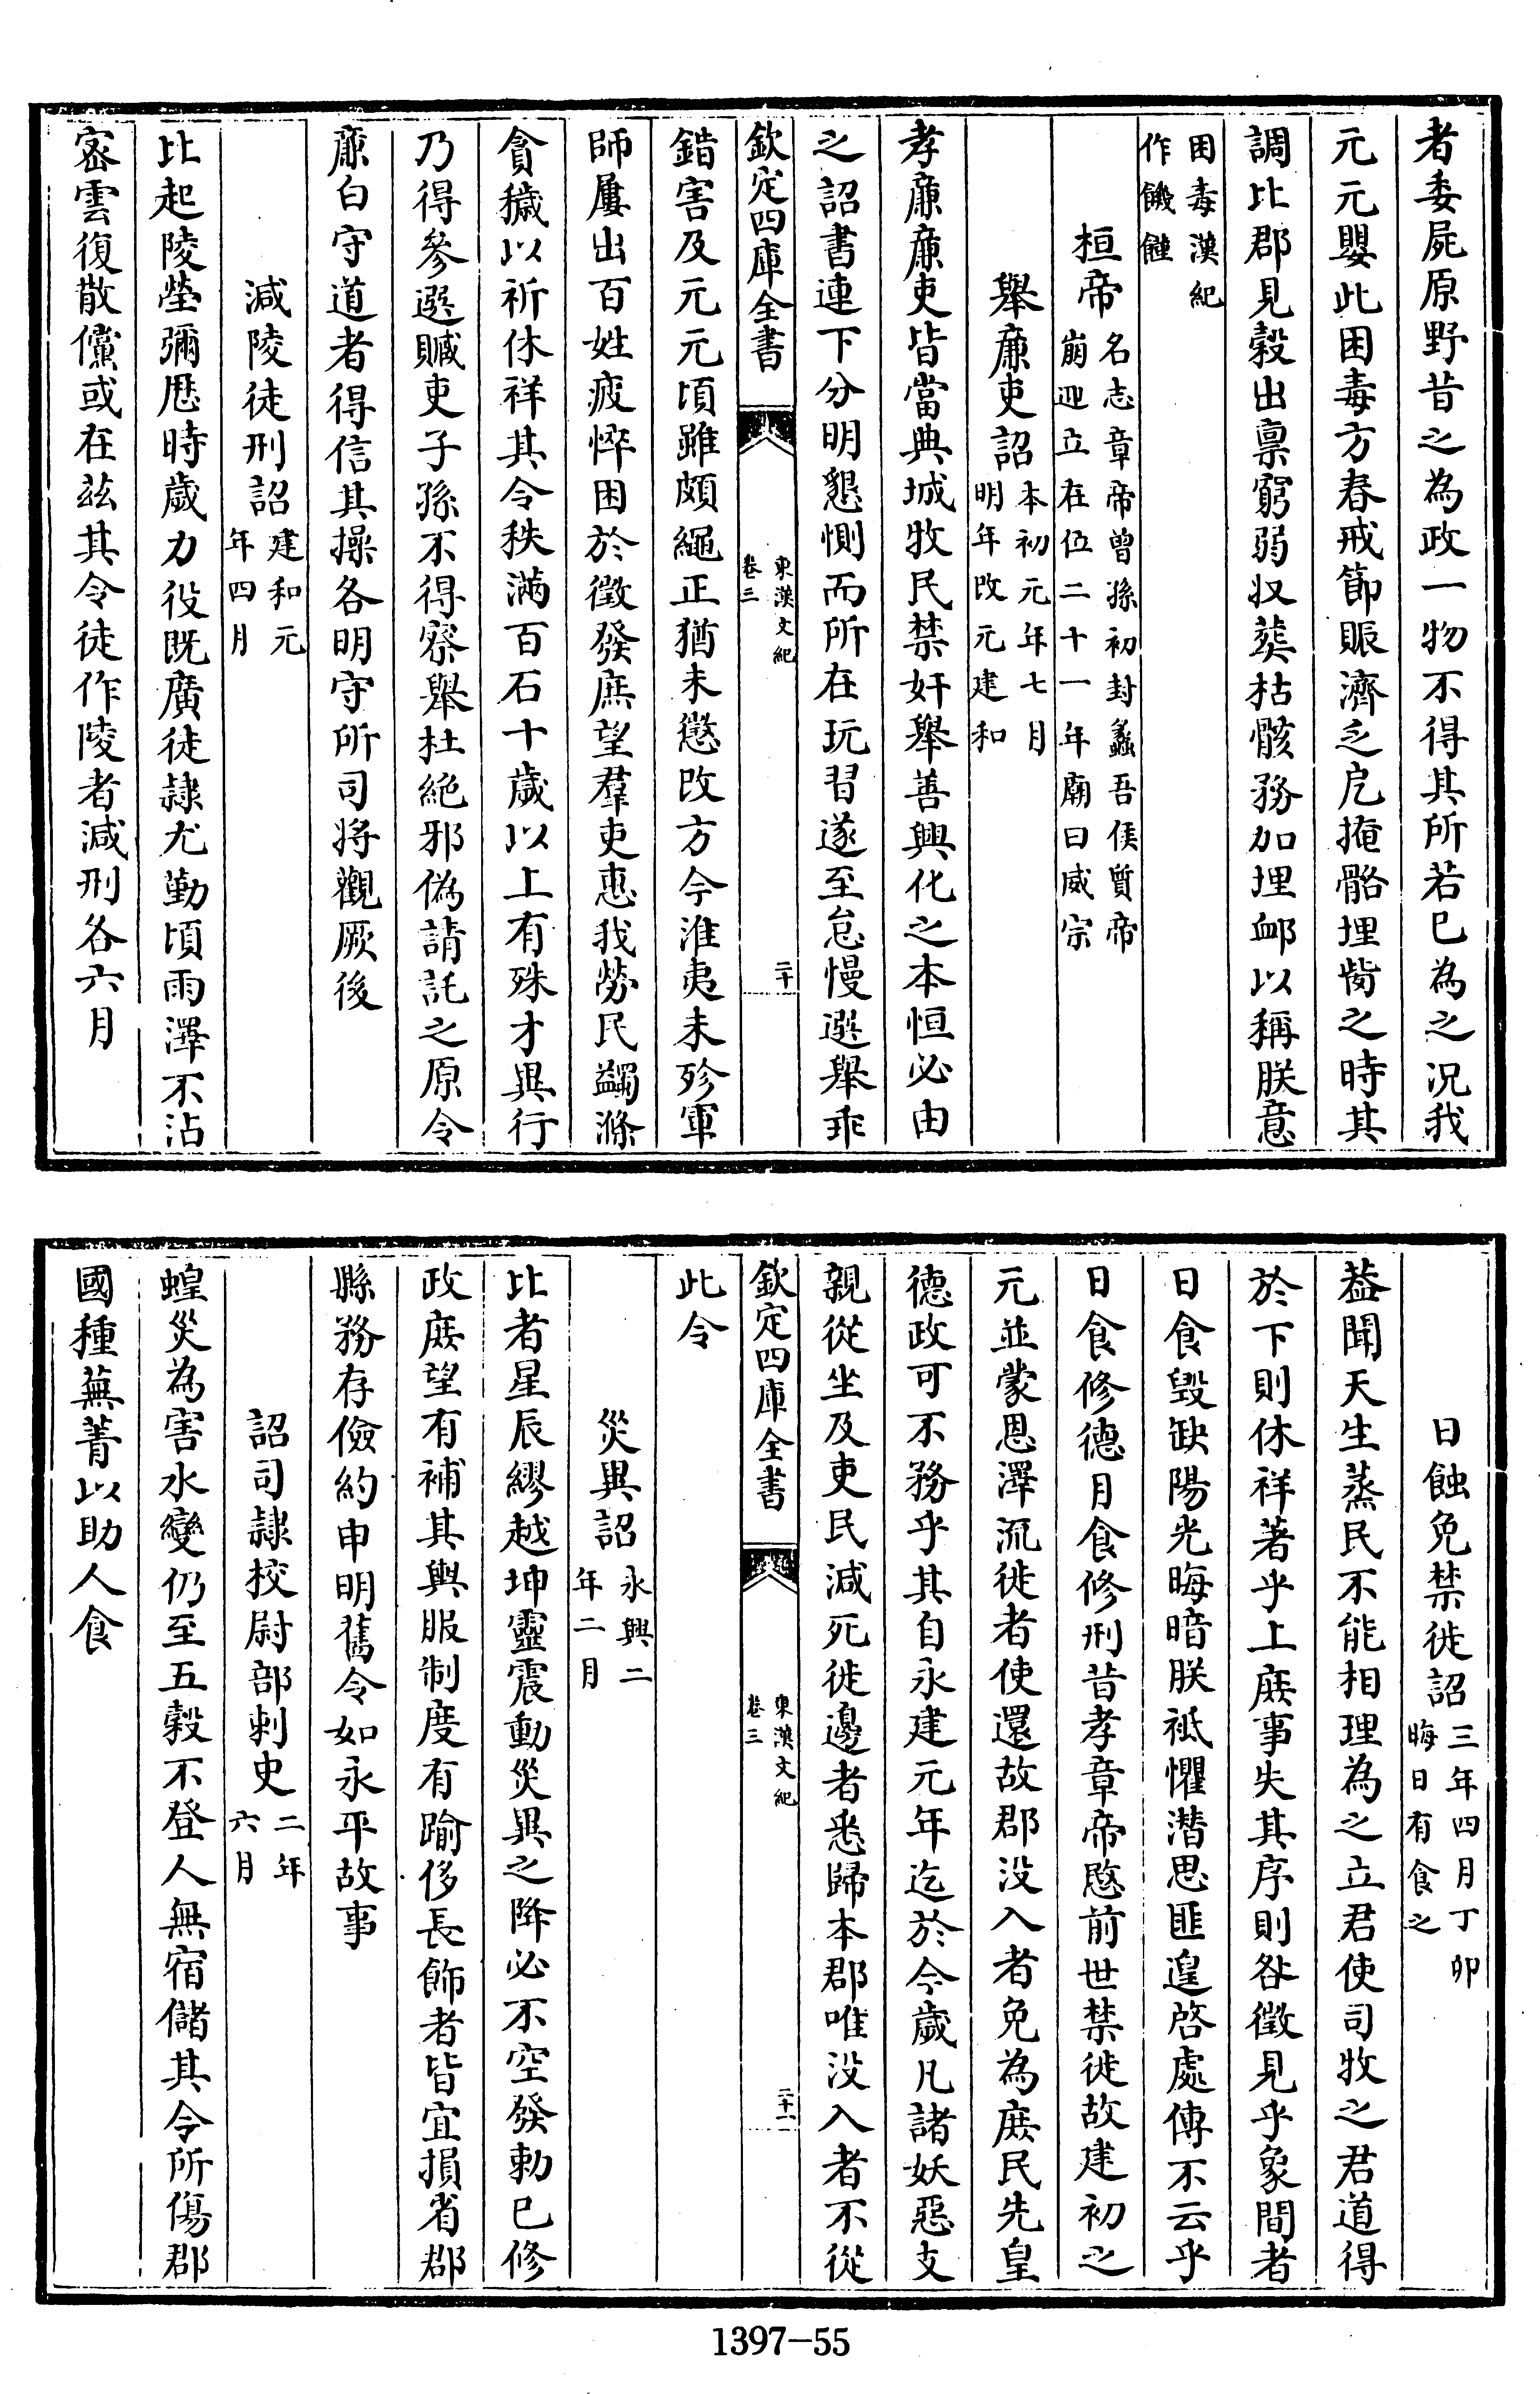 者委屍原野昔之為政一物不得其所若已為之况我
元元嬰此困毒方春戒節賑濟乏戹掩骼埋胔之時其
調比郡見穀出禀窮弱収葬枯骸務加埋䘏以稱朕意
困毒漢紀
作饑饉
桓帝
名志章帝曾孫初封蠡吾侯質帝
崩迎立在位二十一年廟曰威宗
舉廉吏詔
本初元年七月
明年改元建和
孝廉廉吏皆當典城牧民禁奸舉善興化之本恒必由
之詔書連下分明懇惻而所在玩習遂至怠慢選舉乖
欽定四庫全書
東漢文紀
卷三
二十
錯害及元元頃雖頗繩正猶未懲改方今淮夷未殄軍
師屢出百姓疲悴困於徵發庶望羣吏惠我勞民蠲滌
貪穢以祈休祥其令秩滿百石十歲以上有殊才異行
乃得參選贓吏子孫不得察舉杜絶邪偽請託之原令
廉白守道者得信其操各明守所司將觀厥後
減陵徒刑詔
建和元
年四月
比起陵塋彌歴時歲力役既廣徒隷尤勤頃雨澤不沾
密雲復散儻或在兹其令徒作陵者減刑各六月
日蝕免禁徙詔
三年四月丁卯
晦日有食之
葢聞天生蒸民不能相理為之立君使司牧之君道得
於下則休祥著乎上庶事失其序則咎徵見乎象間者
日食毁缺陽光晦暗朕祗懼潛思匪遑啓處傳不云乎
日食修德月食修刑昔孝章帝愍前世禁徙故建初之
元並蒙恩澤流徙者使還故郡没入者免為庶民先皇
德政可不務乎其自永建元年迄於今歲凡諸妖惡支
親從坐及吏民減死徙邊者悉歸本郡唯没入者不從
欽定四庫全書
東漢文紀
卷三
二十一
此令
災異詔
永興二
年二月
比者星辰繆越坤靈震動災異之降必不空發勅已修
政庶望有補其輿服制度有踰侈長飾者皆宜損省郡
縣務存儉約申明舊令如永平故事
詔司隷校尉部刺史
二年
六月
蝗災為害水變仍至五穀不登人無宿儲其令所傷郡
國種蕪菁以助人食
1397-55